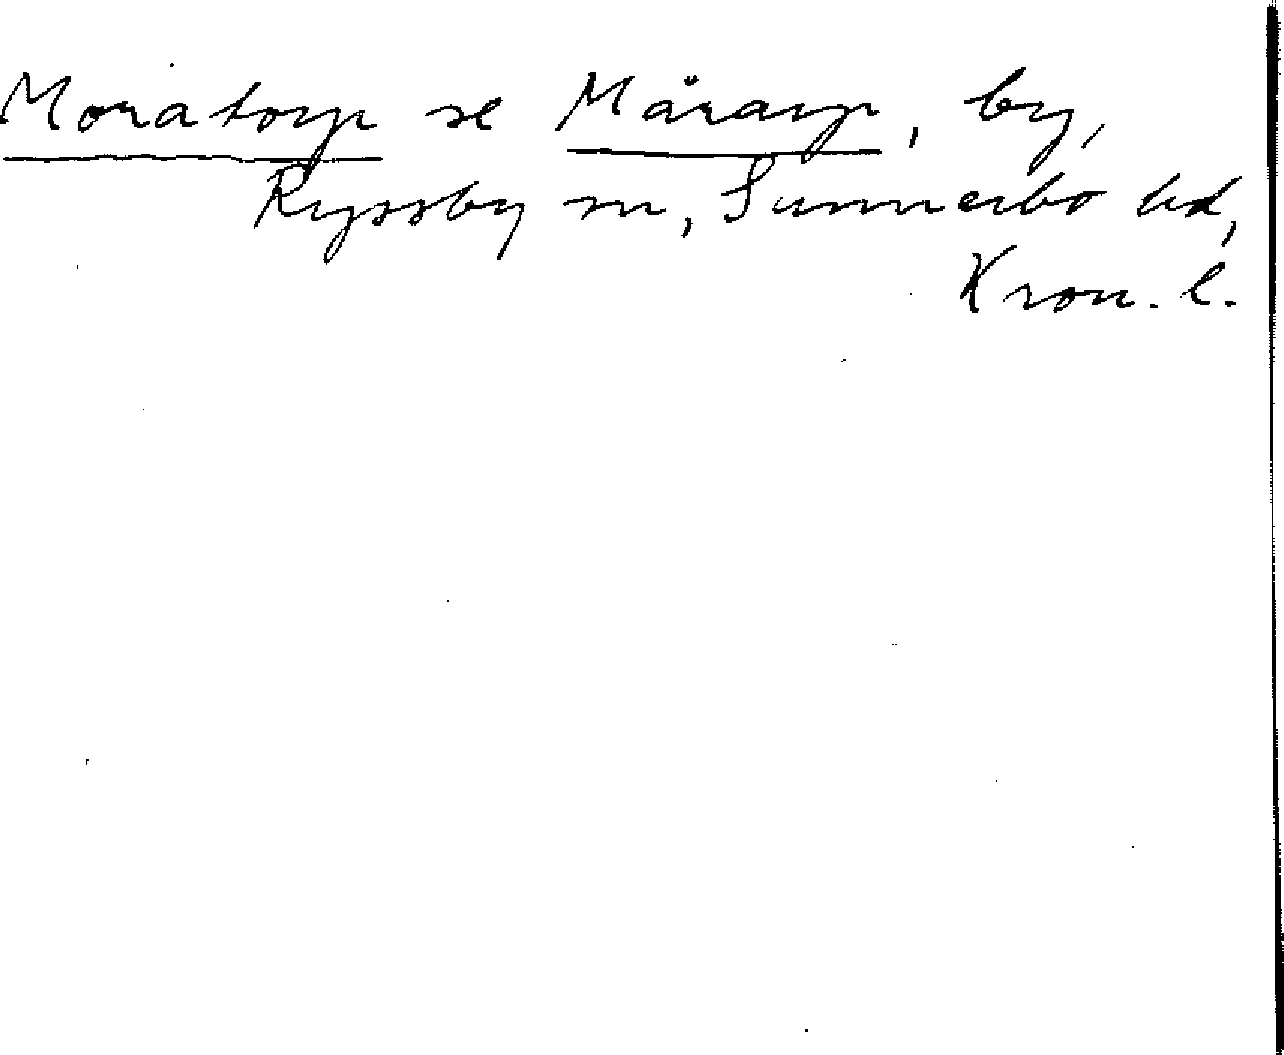 Moratorp se Mårarp, by,
Ryssby sn, Sunnerbo hd,
Kron. l.